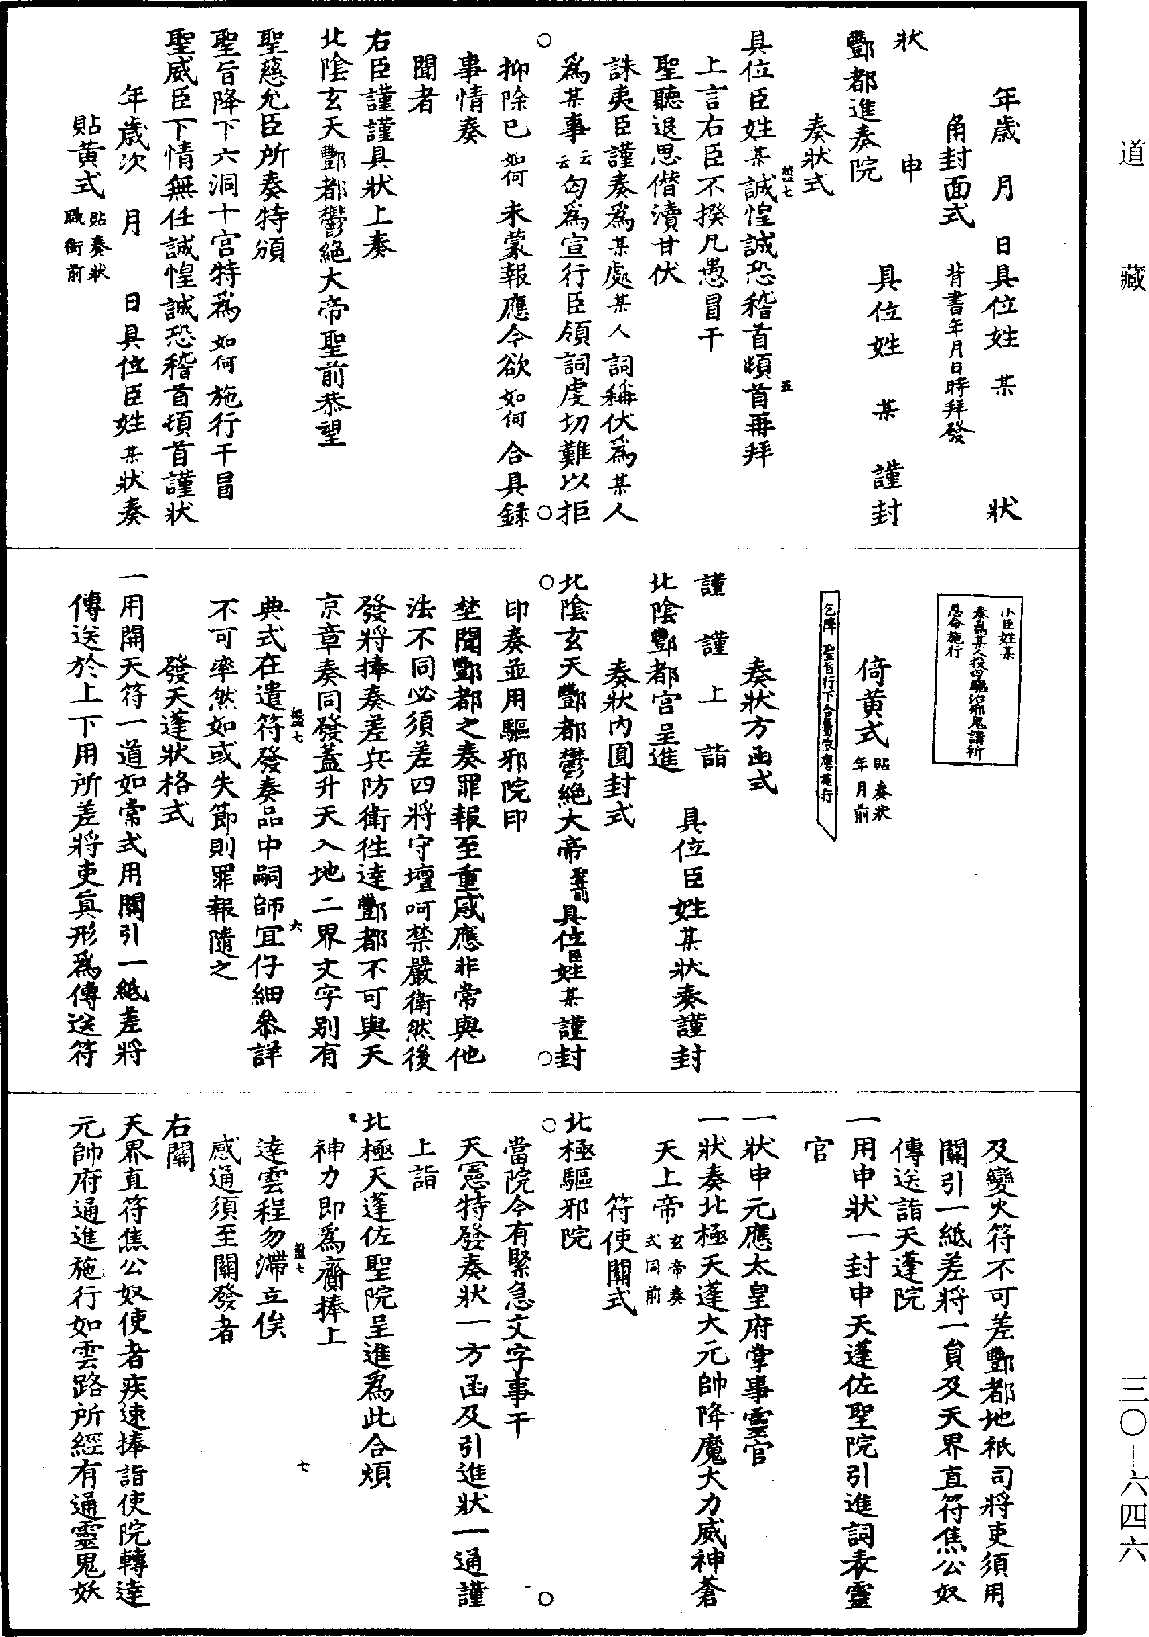 道藏
年歲　月　日具位姓某　狀
角封面式　背書年月日時拜發
狀　申　具位姓　某　謹封
酆都進奏院
奏狀式
具位臣姓某誠惶誠恐稽首頓首再拜
上言右臣不揆凡愚冒干
聖聽退思僭瀆甘伏
誅夷臣謹奏爲某處某人詞稱伏爲某人
爲某事云云匄爲宣行臣領詞虔切難以拒
抑除已如何未蒙報應今欲如何合具錄
事情奏
聞者
右臣謹謹具狀上奏
北陰玄天酆都鬱絕大帝聖前恭望
聖慈允臣所奏特頒
聖旨降下六洞十宮特爲如何施行干冒
聖威臣下情無任誠惶誠恐稽首頓首謹狀
年歲次　月　日具位臣姓某狀奏
貼黃式　貼奏狀職銜前
小臣姓某
恩命施行
倚黃式　貼奏狀年月前
奏狀方函式
謹謹上詣
北陰酆都宮呈進　具位臣姓某狀奏謹封
奏狀內圓封式
北陰玄天酆都鬱絕大帝聖前具位臣姓某謹封
印奏並用驅邪院印
埜聞酆都之奏罪報至重感應非常與他
法不同必須差四將守壇呵禁嚴衛然後
發將捧奏差兵防衛徃達酆都不可與天
京章奏同發蓋升天入地二界文字別有
典式在遣符發奏品中嗣師宜仔細叅詳
不可率然如或失節則罪報隨之
發天蓬狀格式
一用開天符一道如常式用關引一紙差將
傳送於上下用所差將吏眞形爲傳送符
及變火符不可差酆都地祇司將吏須用
關引一紙差將一員及天界直符焦公奴
傳送詣天蓬院
一用申狀一封申天蓬佐聖院引進詞表靈
官
一狀申元應太皇府掌事靈官
一狀奏北極天蓬大元帥降魔大力威神蒼
天上帝　玄帝奏式同前
符使關式
北極驅邪院
當院今有緊急文字事干
天憲特發奏狀一方函及引進狀一通謹
上詣
北極天蓬佐聖院呈進爲此合煩
神力即爲齎捧上
達雲程勿滯立俟
感通須至關發者
右關
天界直符焦公奴使者疾速捧詣使院轉達
元帥府通進施行如雲路所經有通靈鬼妖
三〇—六四六